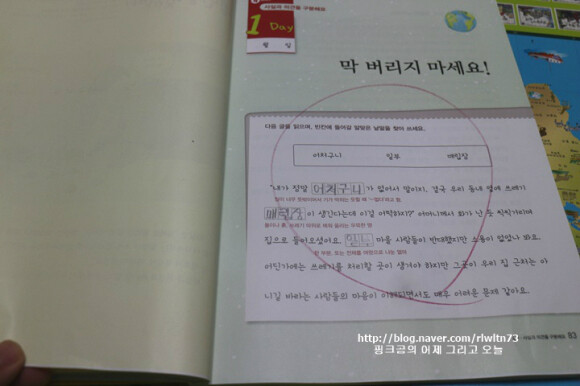 사실과 의견을 구분해요
1 Day
월 일
막 버리지 마세요!
다음 글을 읽으며, 빈칸에 들어갈 알맞은 낱말을 찾아 쓰세요.
어처구니 일부 매립장
"내가 정말 어처구니가 없어서 말이지. 결국 우리 동네 옆에 쓰레기
매립장이 생긴다는데 이걸 어떡하지?" 어머니께서 화가 난 듯 씩씩거리며
집으로 들어오셨어요. 일부 마을 사람들이 반대했지만 소용이 없었나 봐요.
한 부분. 또는 전체를 여럿으로 나눈 얼마
어딘가에는 쓰레기를 처리할 곳이 생겨야 하지만 그곳이 우리 집 근처는 아
니길 바라는 사람들의 마음이 이해되면서도 매우 어려운 문제 같아요.
사실과 의견을 구분해요 83
http://blog.naver.com/rlwltn73
핑크곰의 어제 그리고 오늘